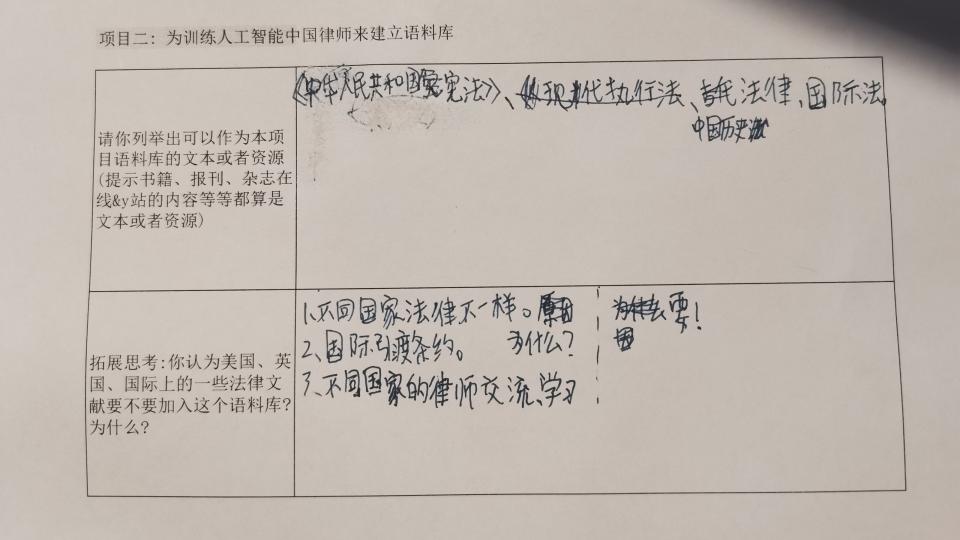 项目二: 为训练人工智能中国律师来建立语料库
请你列举出可以作为本项
目语料库的文本或者资源
(提示书籍、报刊、杂志在
线&y站的内容等等都算是
文本或者资源)
《中华人民共和国宪法》、现代执行法、古代法律、国际法。
中国历史
拓展思考:你认为美国、英
国、国际上的一些法律文
献要不要加入这个语料库?
为什么?
1.不同国家法律不一样。原因
2、国际引渡条约。 为什么?
3、不同国家的律师交流、学习
要!